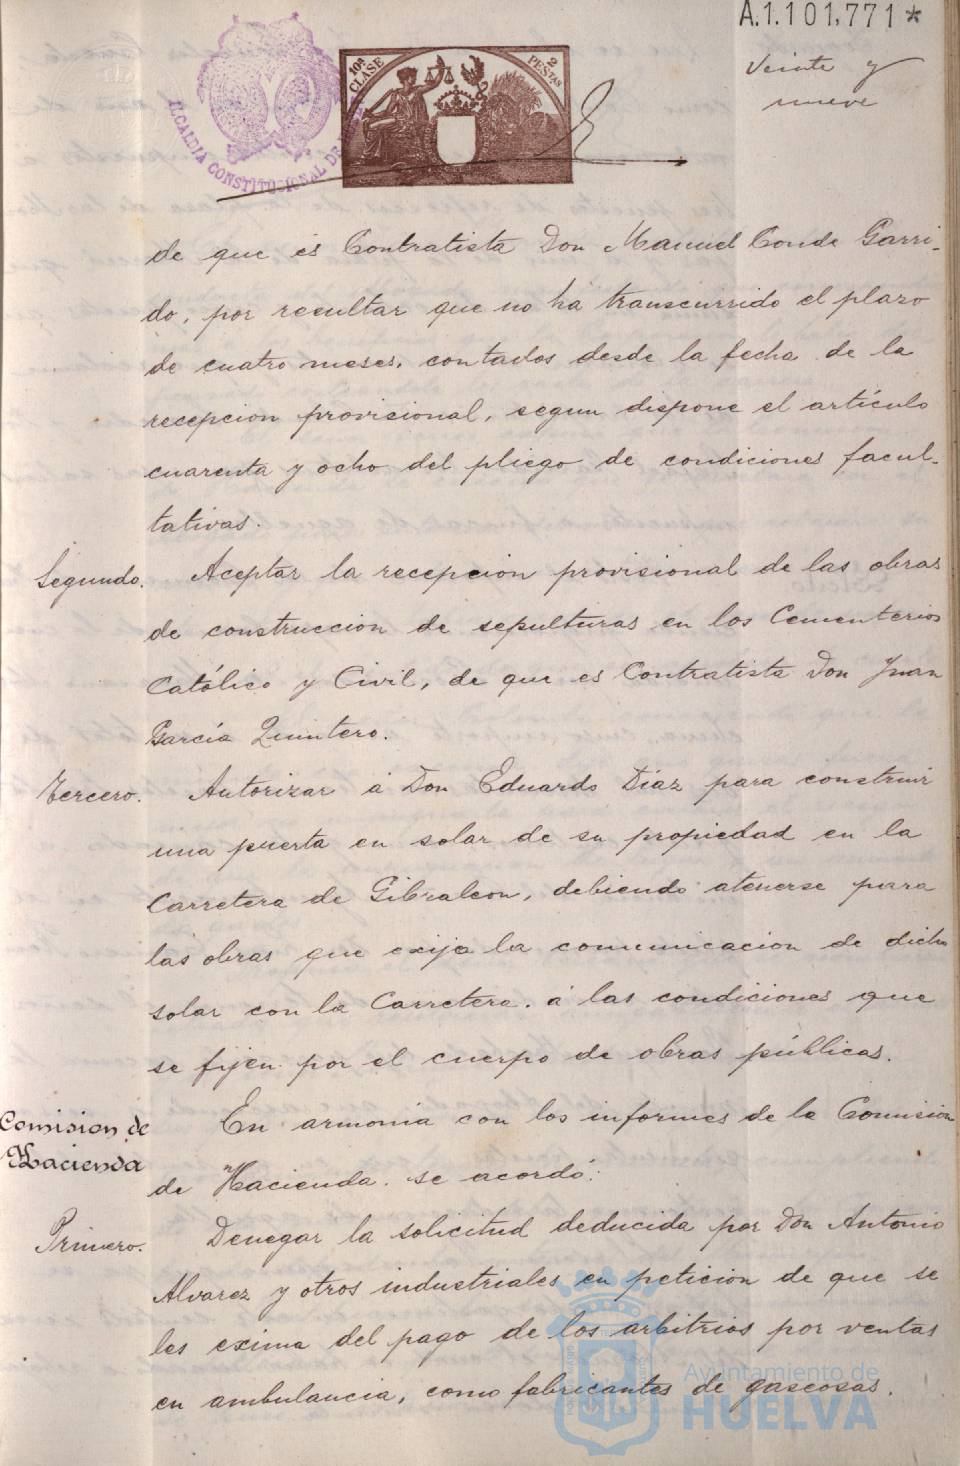 A.1.101,771*
Veinte y
nueve
10ª CLASE
2 PESTAS
ALCALDIA CONSTITUCIONAL DE
de que es Contratista Don Manuel Conde Garri-
do, por resultar que no ha transcurrido el plazo
de cuatro meses, contados desde la fecha de la
recepcion provisional, segun dispone el artículo
cuarenta y ocho del pliego de condiciones facul-
tativas.
Segundo. Aceptar la recepcion provisional de las obras
de construccion de sepulturas en los Cementerios
Católico y Civil, de que es Contratista Don Juan
García Quintero.
Tercero. Autorizar á Don Eduardo Díaz para construir
una puerta en solar de su propiedad en la
Carretera de Gibraleon, debiendo atenerse para
las obras que exija la comunicacion de dicho
solar con la Carretera. á las condiciones que
se fijen por el cuerpo de obras públicas.
Comision de
Hacienda
En armonia con los informes de la Comision
de Hacienda. se acordó:
Primero. Denegar la solicitud deducida por Don Antonio
Alvarez y otros industriales en peticion de que se
les exima del pago de los arbitrios por ventas
en ambulancia, como fabricantes de gaseosas.
Ayuntamiento de
HUELVA